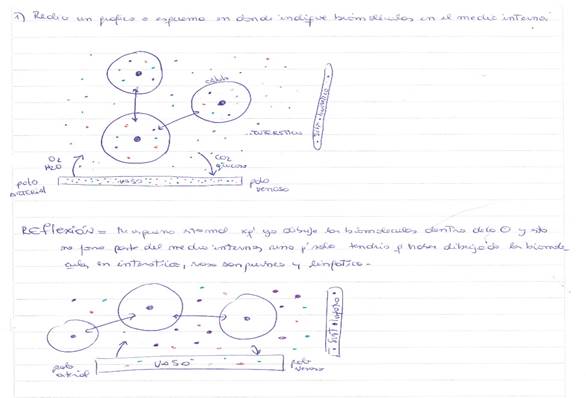 1) Realice un gráfico o esquema en donde indique biomoléculas en el medio interno
célula
INTERSTICIO
SIST. linfático
O2
H2O
CO2
glucosa
polo arterial
VASO
polo venoso
REFLEXIÓN = Mi esquema mal xq' yo dibujé las biomoléculas dentro de la O y esto
no forma parte del medio interno, sino q' solo tendría q' haber dibujado las biomolé-
culas en intersticio, vaso sanguíneo y linfático.-
SIST
polo
VASO
polo
venoso